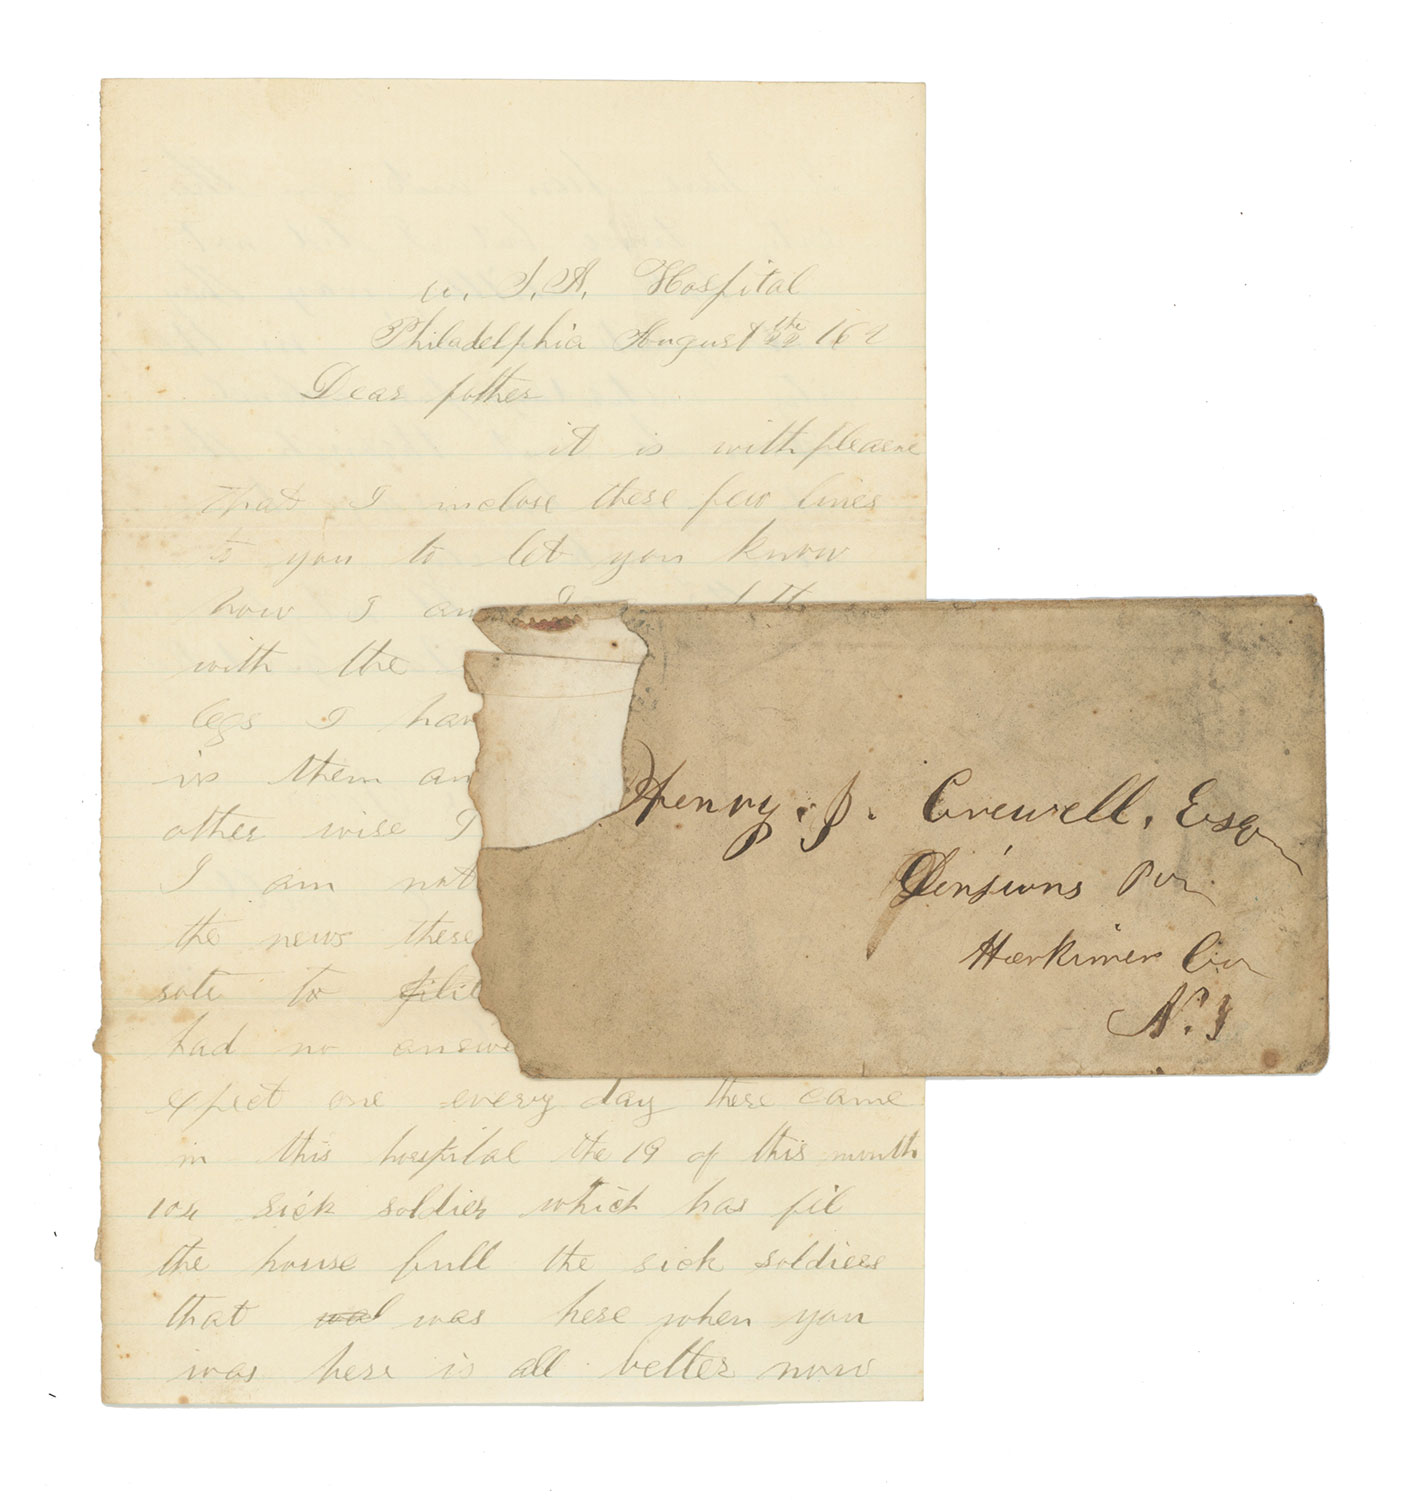 U. S. A. Hospital
Philadelphia August the 22 / 62
Dear father
it is with pleasure
that I inclose these few lines
to you to let you know
how I am I
with the
legs I hav
in them an
other wise I
I am not
the news these
rote to
had no answe
expect one every day there came
in this hospital the 19 of this month
104 sick soldier which has fil
the house full the sick soldiers
that was here when you
was here is all better now
Henry. J. Crewell, Esq
Cor
Herkimer Co
N. Y